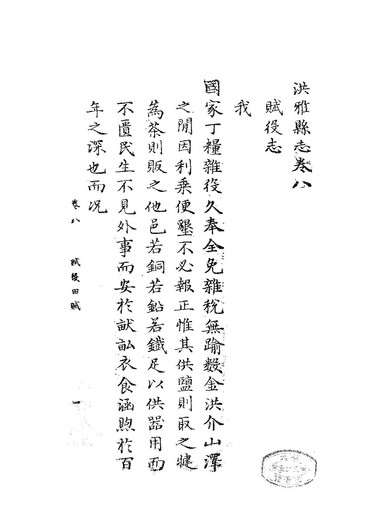 洪雅縣志卷八
賦役志
我
國家丁糧雜役久奉全免雜稅無踰數金洪介山澤
之閒因利乘便墾不必報正惟其供鹽則取之犍
為茶則販之他邑若銅若鉛若鐵足以供器用而
不匱民生不見外事而安於畎畝衣食涵煦於百
年之深也而況
卷八
賦役田賦
一